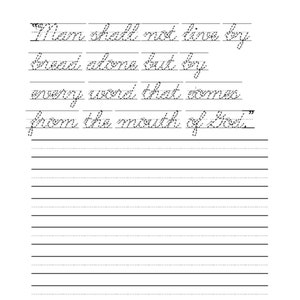 "Man shall not live by
bread alone but by
every word that comes
from the mouth of God."